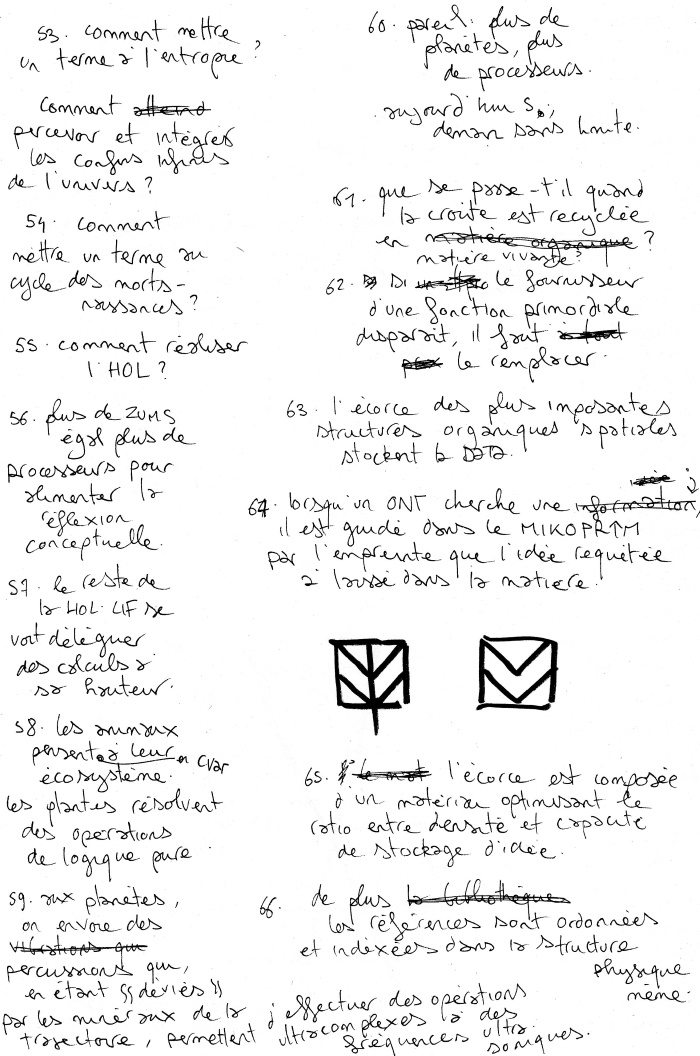 53. comment mettre
un terme à l'entropie ?
comment attend
percevoir et intégrer
les confins infinis
de l'univers ?
54. comment
mettre un terme au
cycle des morts-
naissances ?
55. comment réaliser
l'HOL ?
56. plus de ZUMS
égal plus de
processeurs pour
alimenter la
réflexion
conceptuelle.
57. le reste de
la HOL·LIF se
voit déléguer
des calculs à
sa hauteur.
58. les animaux
pensent à leur en CVAR
écosystème.
les plantes résolvent
des opérations
de logique pure.
59. aux planètes,
on envoie des
vibrations que
percussions qui,
en étant "déviés"
par les minéraux de la
trajectoire, permettent
d'effectuer des opérations
ultracomplexes à des
fréquences ultra
soniques.
60. pareil: plus de
planètes, plus
de processeurs.
aujourd'hui S.,
demain sans limite.
61. que se passe-t'il quand
la croûte est recyclée
en matière organique ?
matière vivante ?
62. si le fournisseur
d'une fonction primordiale
disparait, il faut à tout
prix le remplacer.
63. l'écorce des plus imposantes
structures organiques spatiales
stockent la DATA.
idée
64. lorsqu'un ONT cherche une information,
il est guidé dans le MIKOPRTM
par l'empreinte que l'idée requêtée
a laissé dans la matière.
65. le mot l'écorce est composée
d'un matériau optimisant le
ratio entre densité et capacité
de stockage d'idée.
66. de plus la bibliothèque
les références sont ordonnées
et indexées dans la structure
physique
même.